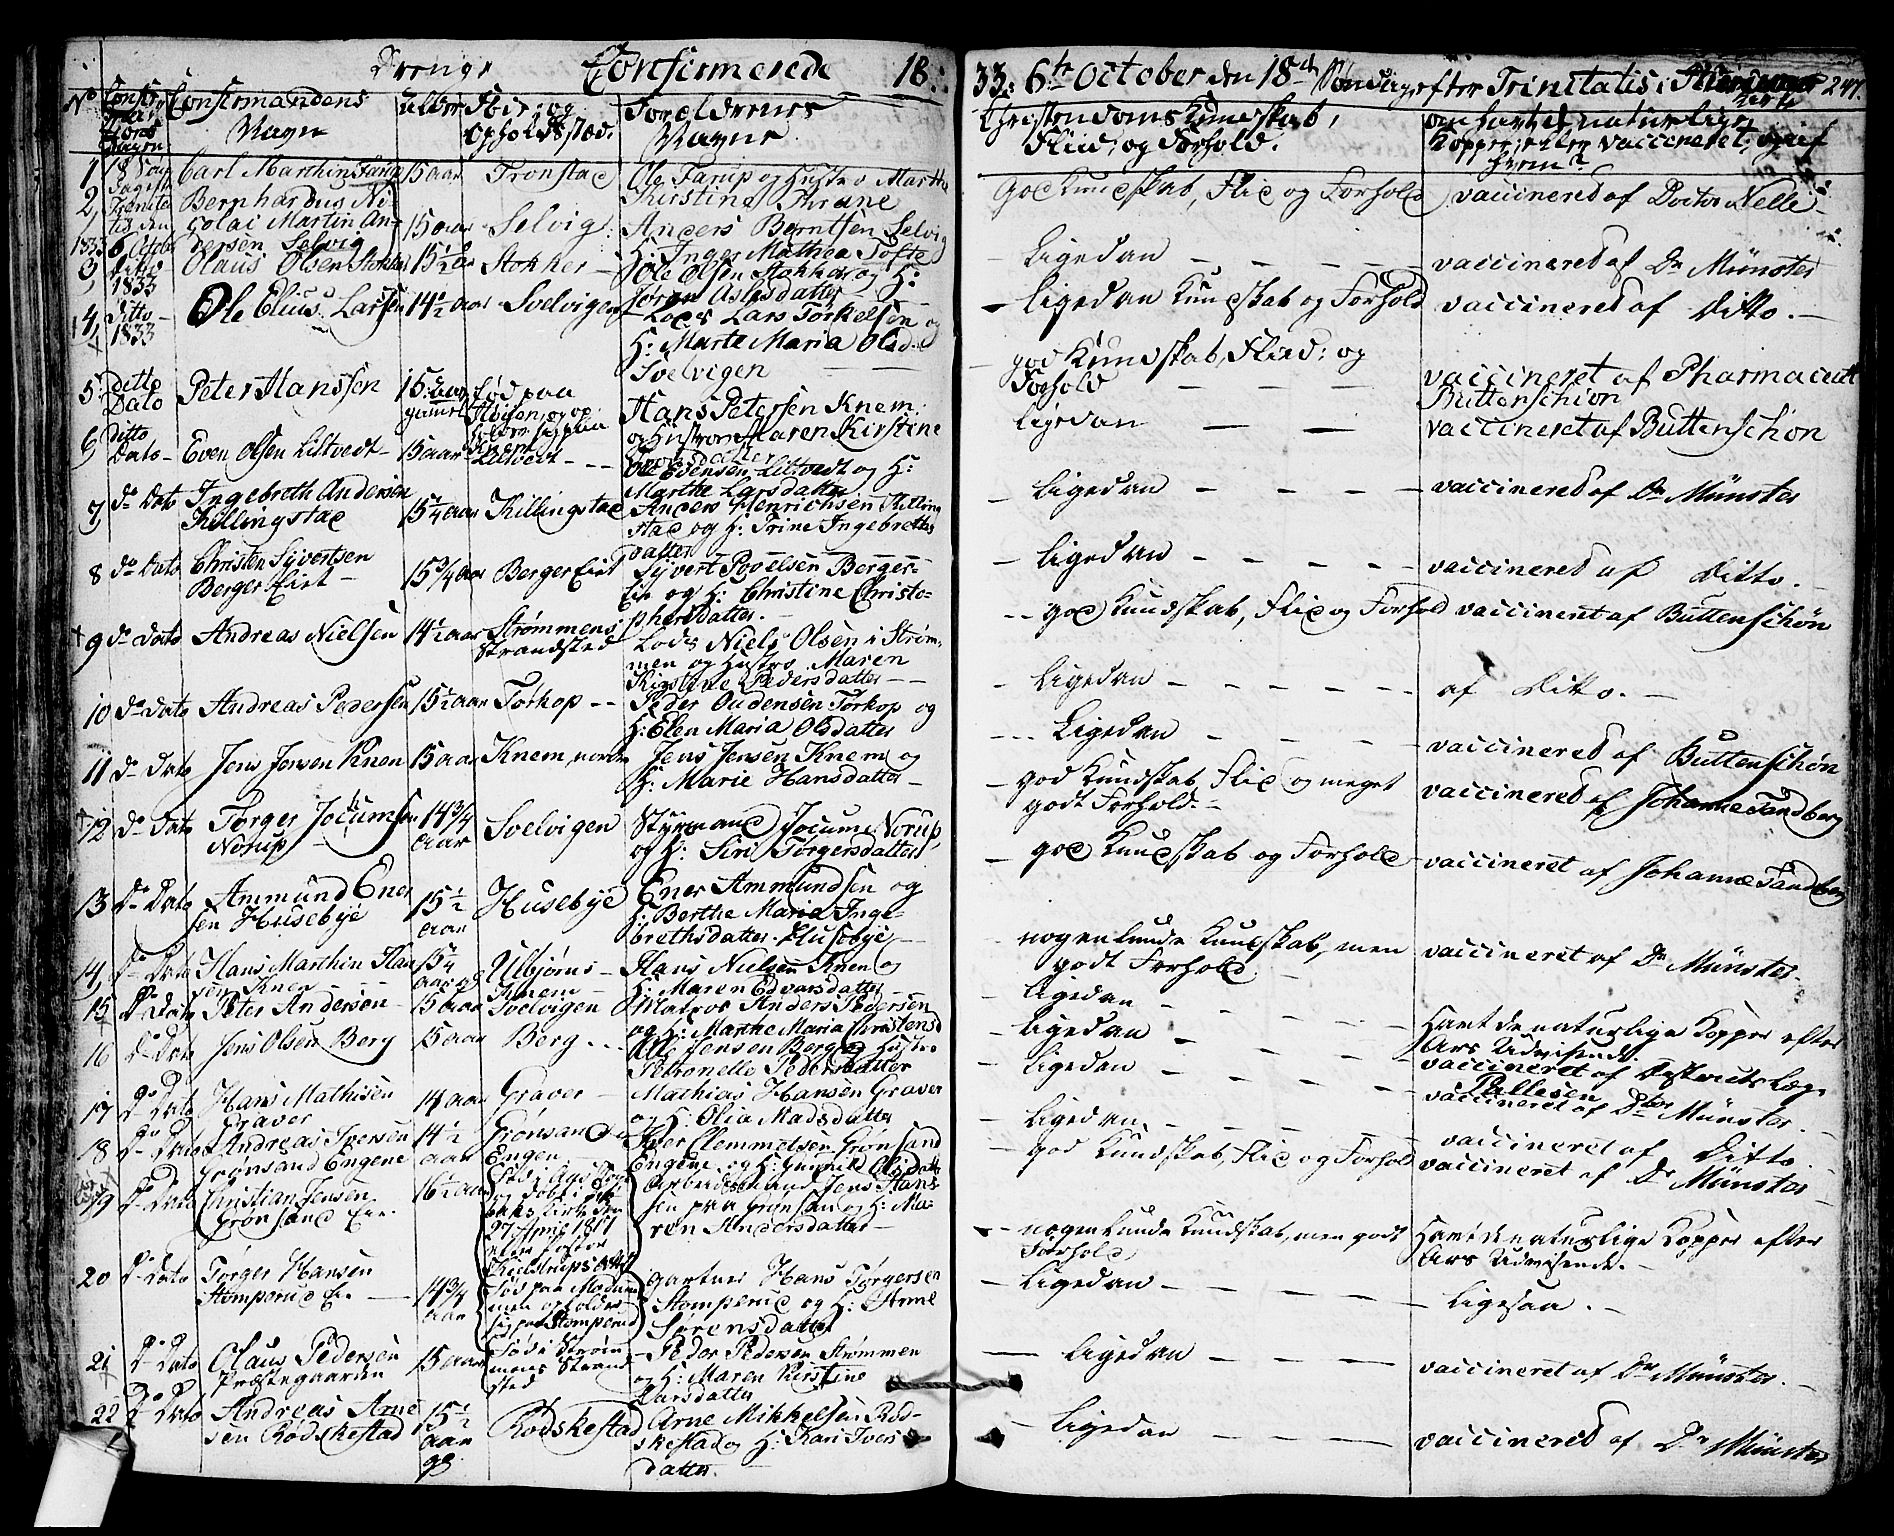 Drenge Confirmerede 18
33. 6te October den 18de Søndag efter Trinitatis i 247.
No Confirmandens Navn
Alder
Opholdssted.
Forældrenes Navne
Christendoms Kundskab, Fliid, og Forhold.
om havt de naturlige Kopper, eller vaccineret, og af hvem?
1 Carl Marthin Farup 15 aar Tronstad Ole Farup og Hustro Marthe Kirstine Thrane
God Kundskab, Flid og Forhold vaccinered af Doctor Nelle
2, Bernhardus Nicolai Martin Andersen Selvig 15 aar Selvig Anders Berntsen Selvig H: Inger Mathea Tofte
Ligedan vaccinered af Dr Münster
1833 6 Octobr
3, ditto 1833 Olaus Olsen Stokker 15½ aar Stokker Ole Olsen Stokker og H: Jøran Aslesdatter
Ligedan Kundskab og Forhold vaccinered af Ditto.
4, Ditto 1833 Ole Elius Larsen 14½ aar Svelvigen Lods Lars Torkelsen og H: Marte Maria Olsd. Svelvigen
god Kundskab, Fliid: og Forhold vaccineret af Pharmaceut Buttenschion
5 ditto Dato Peter Hanssen 15 aar gammel Fød paa Knem Hans Petersen Knem og Hustro Maren Kirstine
Ligedan vaccineret af Buttenschøn
6, ditto Dato Even Olsen Liltvedt 15 aar Liltvedt Ole Evensen Liltvedt og H: Marthe Larsdatter
Ligedan vaccinered af Dr Münster
7, do Dato Ingebreth Andersen Killingstad 15¼ aar Killingstad Anders Henrichsen Killingstad og H: Trine Ingebrethsdatter
Ligedan vaccinered af Ditto.
8 do Dato Christen Syvertsen Berger Eiet 15¾ aar Berger Eiet Syvert Povelsen Berger Eie og H: Christine Christophersdatter.
god Kundskab, Flid og Forhold vaccineret af Buttenschøn
9 do Dato Andreas Nielsen 14½ aar Strømmens Strandsted Lods Niels Olsen i Strømmen og Hustro Maren Kirstine Pedersdatter
Ligedan af Ditto.
10 do Dato Andreas Pedersen 15½ aar Tørkop Peder Oudensen Tørkop og H: Elen Maria Olsdatter
Ligedan vaccinered af Buttenschøn
11 do Dato Jens Jensen Knem 15 aar Knem, nordre Jens Jensen Knem og H: Marie Hansdatter
god Kundskab, Flid og meget godt Forhold. vaccinered af Johanne Sandberg
12 do Dato Torger Jocumsen Norup 14¾ aar Svelvigen Styrmand Jocum Norup, og H: Siri Torgersdatter
god Kundskab og Forhold vaccineret af Johanne Sandberg
13 do Dato Ammund Enersen Husebye 15½ aar Husebye Ener Ammundsen og H: Berthe Maria Ingebrethsdatter. Husebye
nogenlunde Kundskab, men godt Forhold vaccineret af Dr Münster
14, do Dato Hans Marthin Hansen Knem 15¼ aar Ulbjørns-Knem Hans Nielsen Knem og H: Maren Edvarsdatter
Ligedan Havt de naturlige Kopper efter Ars Udvisende.
15 do Dato Peter Andersen 15 aar Svelvigen Matros Anders Pedersen og H: Marthe Maria Christensd
Ligedan vaccineret af Districts Læge Pallesen
16 do Dato Jens Olsen Berg 15 aar Berg Ole Jensen Berg og Hustro Petronelle Pedersdatter
Ligedan vaccineret af Dtor Münster
17 do Dato Hans Mathisen Graver 14 aar Graver Mathias Hansen Graver og H: Olia Madsdatter
Ligedan vaccineret af Ditto
18 do Dato Andreas Iversen Grønsand Engene 14½ aar Grønsand Engen Iver Clemmetsen Grønsand Engene og H: Gunnild Olsdatter
god Kundskab, Flid og Forhold vaccineret af Dr Münster
19 do Dato Christian Jensen Grønsand Eie. 16½ aar 27 April 1817 Arbeidsmand Jens Hansen paa Grønsand og H: Maren Andersdatter
nogenlunde Kundskab, men godt Forhold Havt de naturlige Kopper efter Ars Udvisende.
20 do Dato Torger Hansen Stomperud Eie 14¾ aar Fød paa Modum men opholder sig paa Stomperud gartner Hans Torgersen Stomperud og H: Anne Sørensdatter
Ligedan Ligesaa.
21 do Dato Olaus Pedersen Præstegaarden 15 aar Fød i Strømmens Strandsted Peder Pedersen Strømmen og H: Maren Kirstine Larsdatter
Ligedan vaccineret af Dr Münster.
22 do Dato Andreas Arnesen Rødskestad 15½ aar Rødskestad Arne Mikkelsen Rødskestad og H: Kari Iversdatter.
Ligedan vaccinered af Dr Münster